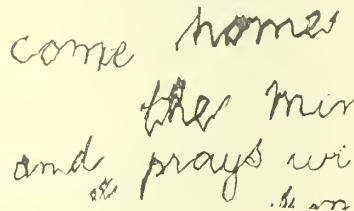 come home
the min
and prays wi